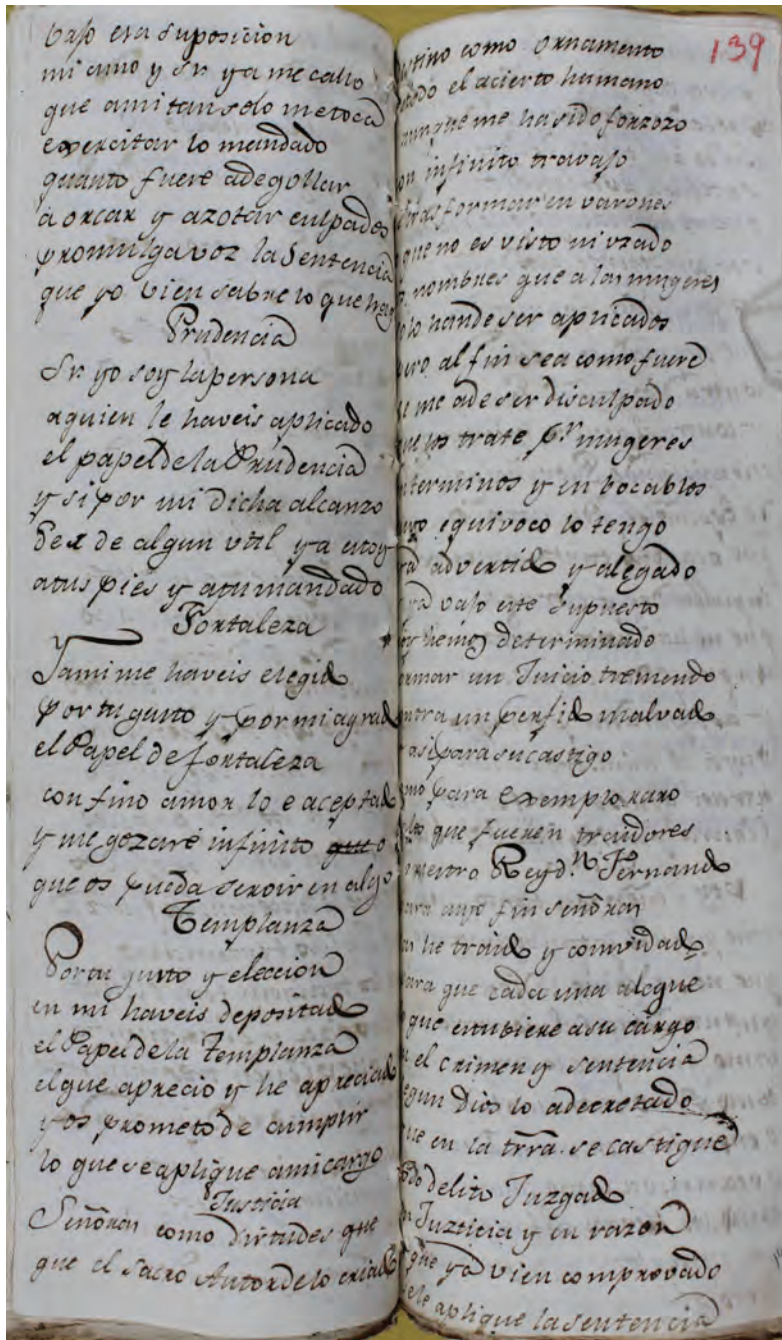 bajo esa suposicion
mi amo y Sr. ya me callo
que ami tan solo me toca
exercitar lo mandado
quanto fuere adegollar
a orcar y azotar culpados
promulga voz la Sentencia
que yo vien sabre lo que hago
Prudencia
Sr. yo soy la persona
aquien le haveis aplicado
el papel de la Prudencia
y si por mi dicha alcanzo
ser de algun util ya estoy
atus pies y atu mandado
Fortaleza
Y ami me haveis elegido
por tu gusto y por mi agrado
el Papel de fortaleza
con fino amor lo e aceptado
y me gozaré infinito
que os pueda servir en algo
Templanza
Por tu gusto y eleccion
en mi haveis depositado
el Papel de la Templanza
el que aprecio y he apreciado
y os prometo de cumplir
lo que se aplique ami cargo
Justicia
Señoras como Virtudes que
que el Sacro Autor de lo criado
139
destino como ornamento
todo el acierto humano
aunque me ha sido forzozo
con infinito travajo
transformar en varones
que no es visto ni vzado
nombres que a las mugeres
solo han de ser aplicados
pero al fin sea como fuere
se me ade ser disculpado
que os trate pr. mugeres
terminos y en bocables
equivoco lo tengo
advertido y alegado
vajo este Supuesto
hemos determinado
formar un Juicio tremendo
contra un perfido malvado
asi para su castigo
como para exemplo raro
que fueren traidores
a nuestro Rey dn. Fernando
para cuyo fin señoras
he traido y comvidado
para que cada una alegue
que estubiere asu cargo
el crimen y sentencia
segun Dios lo adecretado
que en la trra. se castigue
todo delito Juzgado
en Justicia y en razon
que ya vien comprovado
se le aplique la sentencia